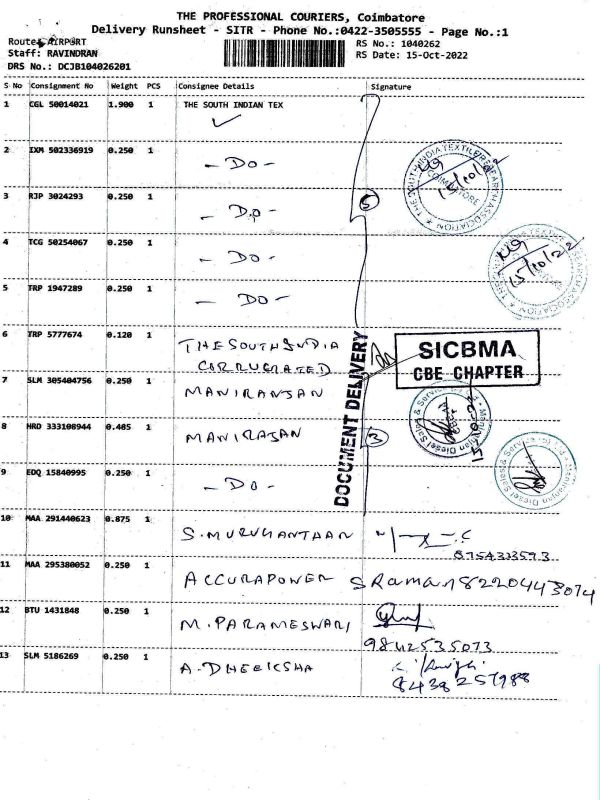 THE PROFESSIONAL COURIERS, Coimbatore
Delivery Runsheet - SITR - Phone No.:0422-3505555 - Page No.:1
Route: AIRPORT RS No.: 1040262
Staff: RAVINDRAN RS Date: 15-Oct-2022
DRS No.: DCJB104026201
S No Consignment No Weight PCS Consignee Details Signature
1 CGL 50014021 1.900 1 THE SOUTH INDIAN TEX
2 IXM 502336919 0.250 1 - DO -
3 RJP 3024293 0.250 1 - DO -
5
4 TCG 50254067 0.250 1 - DO -
5 TRP 1947289 0.250 1 - DO -
6 TRP 5777674 0.120 1 THE SOUTH INDIA
CORRUGRATED
SICBMA
CBE CHAPTER
DOCUMENT DELIVERY
7 SLM 305404756 0.250 1 MANIRANJAN
8 HRD 333108944 0.485 1 MANIRAJAN
9 EDQ 15840995 0.250 1 - DO -
THE SOUTH INDIA TEXTILE RESEARCH ASSOCIATION
COIMBATORE
15/10/22
15/10/22
Maniranjan Diesel Sales & Service
15-10-22
10 MAA 291440623 0.875 1 S. MURUGANTHAN
11 MAA 295380052 0.250 1 ACCURAPOWER S Raman 8220443074
12 BTU 1431848 0.250 1 M. PARAMESWARI
9842535073
13 SLM 5186269 0.250 1 A. DHEEKSHA
8438257988